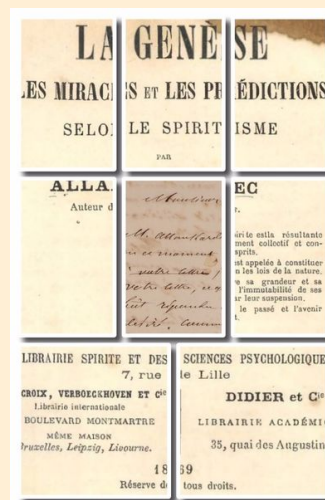 LA GENÈSE
LES MIRACLES ET LES PRÉDICTIONS
SELON LE SPIRITISME
PAR
ALLA
EC
Auteur d
Monsieur
M. Allan Kard
en ce moment
votre lettre
votre lettre
r.
pirite est la résultante
ment collectif et con-
sprits.
st appelée à constituer
n les lois de la nature.
e sa grandeur et sa
l'immutabilité de ses
ar leur suspension.
le passé et l'avenir
t.
LIBRAIRIE SPIRITE ET DES SCIENCES PSYCHOLOGIQUE
7, rue de Lille
CROIX, VERBOECKHOVEN ET Cie
Librairie internationale
BOULEVARD MONTMARTRE
MÊME MAISON
Bruxelles, Leipzig, Livourne.
DIDIER et Cie
LIBRAIRIE ACADÉMI
35, quai des Augustin
1869
Réserve de tous droits.